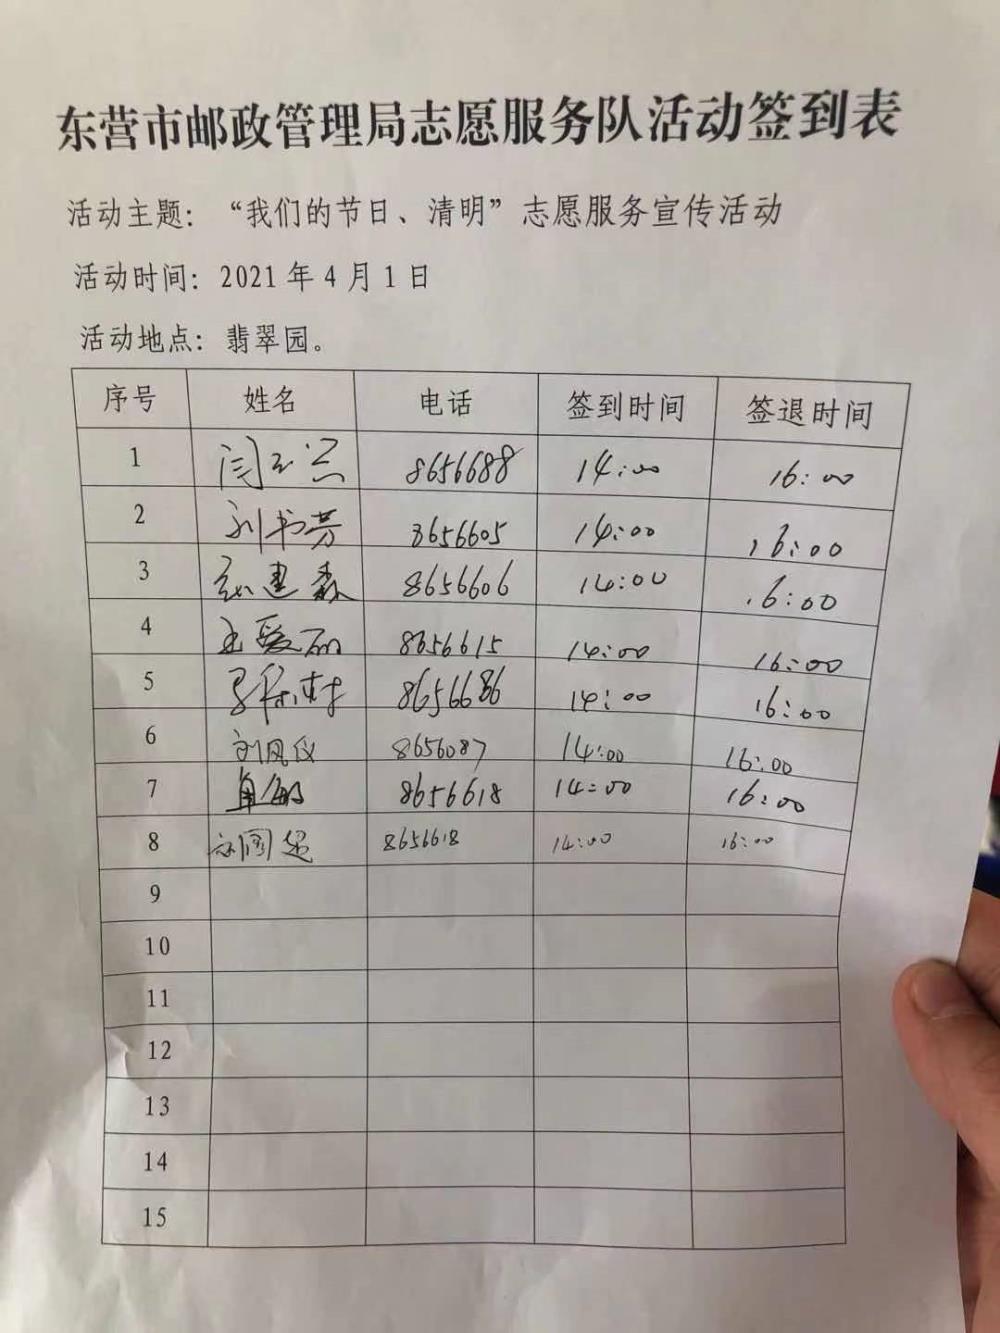 东营市邮政管理局志愿服务队活动签到表
活动主题：“我们的节日、清明”志愿服务宣传活动
活动时间：2021年4月1日
活动地点：翡翠园。
序号 姓名 电话 签到时间 签退时间
1 8656688 14:00 16:00
2 刘书芳 8656605 14:00 16:00
3 建森 8656606 14:00 16:00
4 王爱丽 8656615 14:00 16:00
5 8656686 14:00 16:00
6 刘凤仪 8656087 14:00 16:00
7 8656618 14:00 16:00
8 国超 8656618 14:00 16:00
9
10
11
12
13
14
15